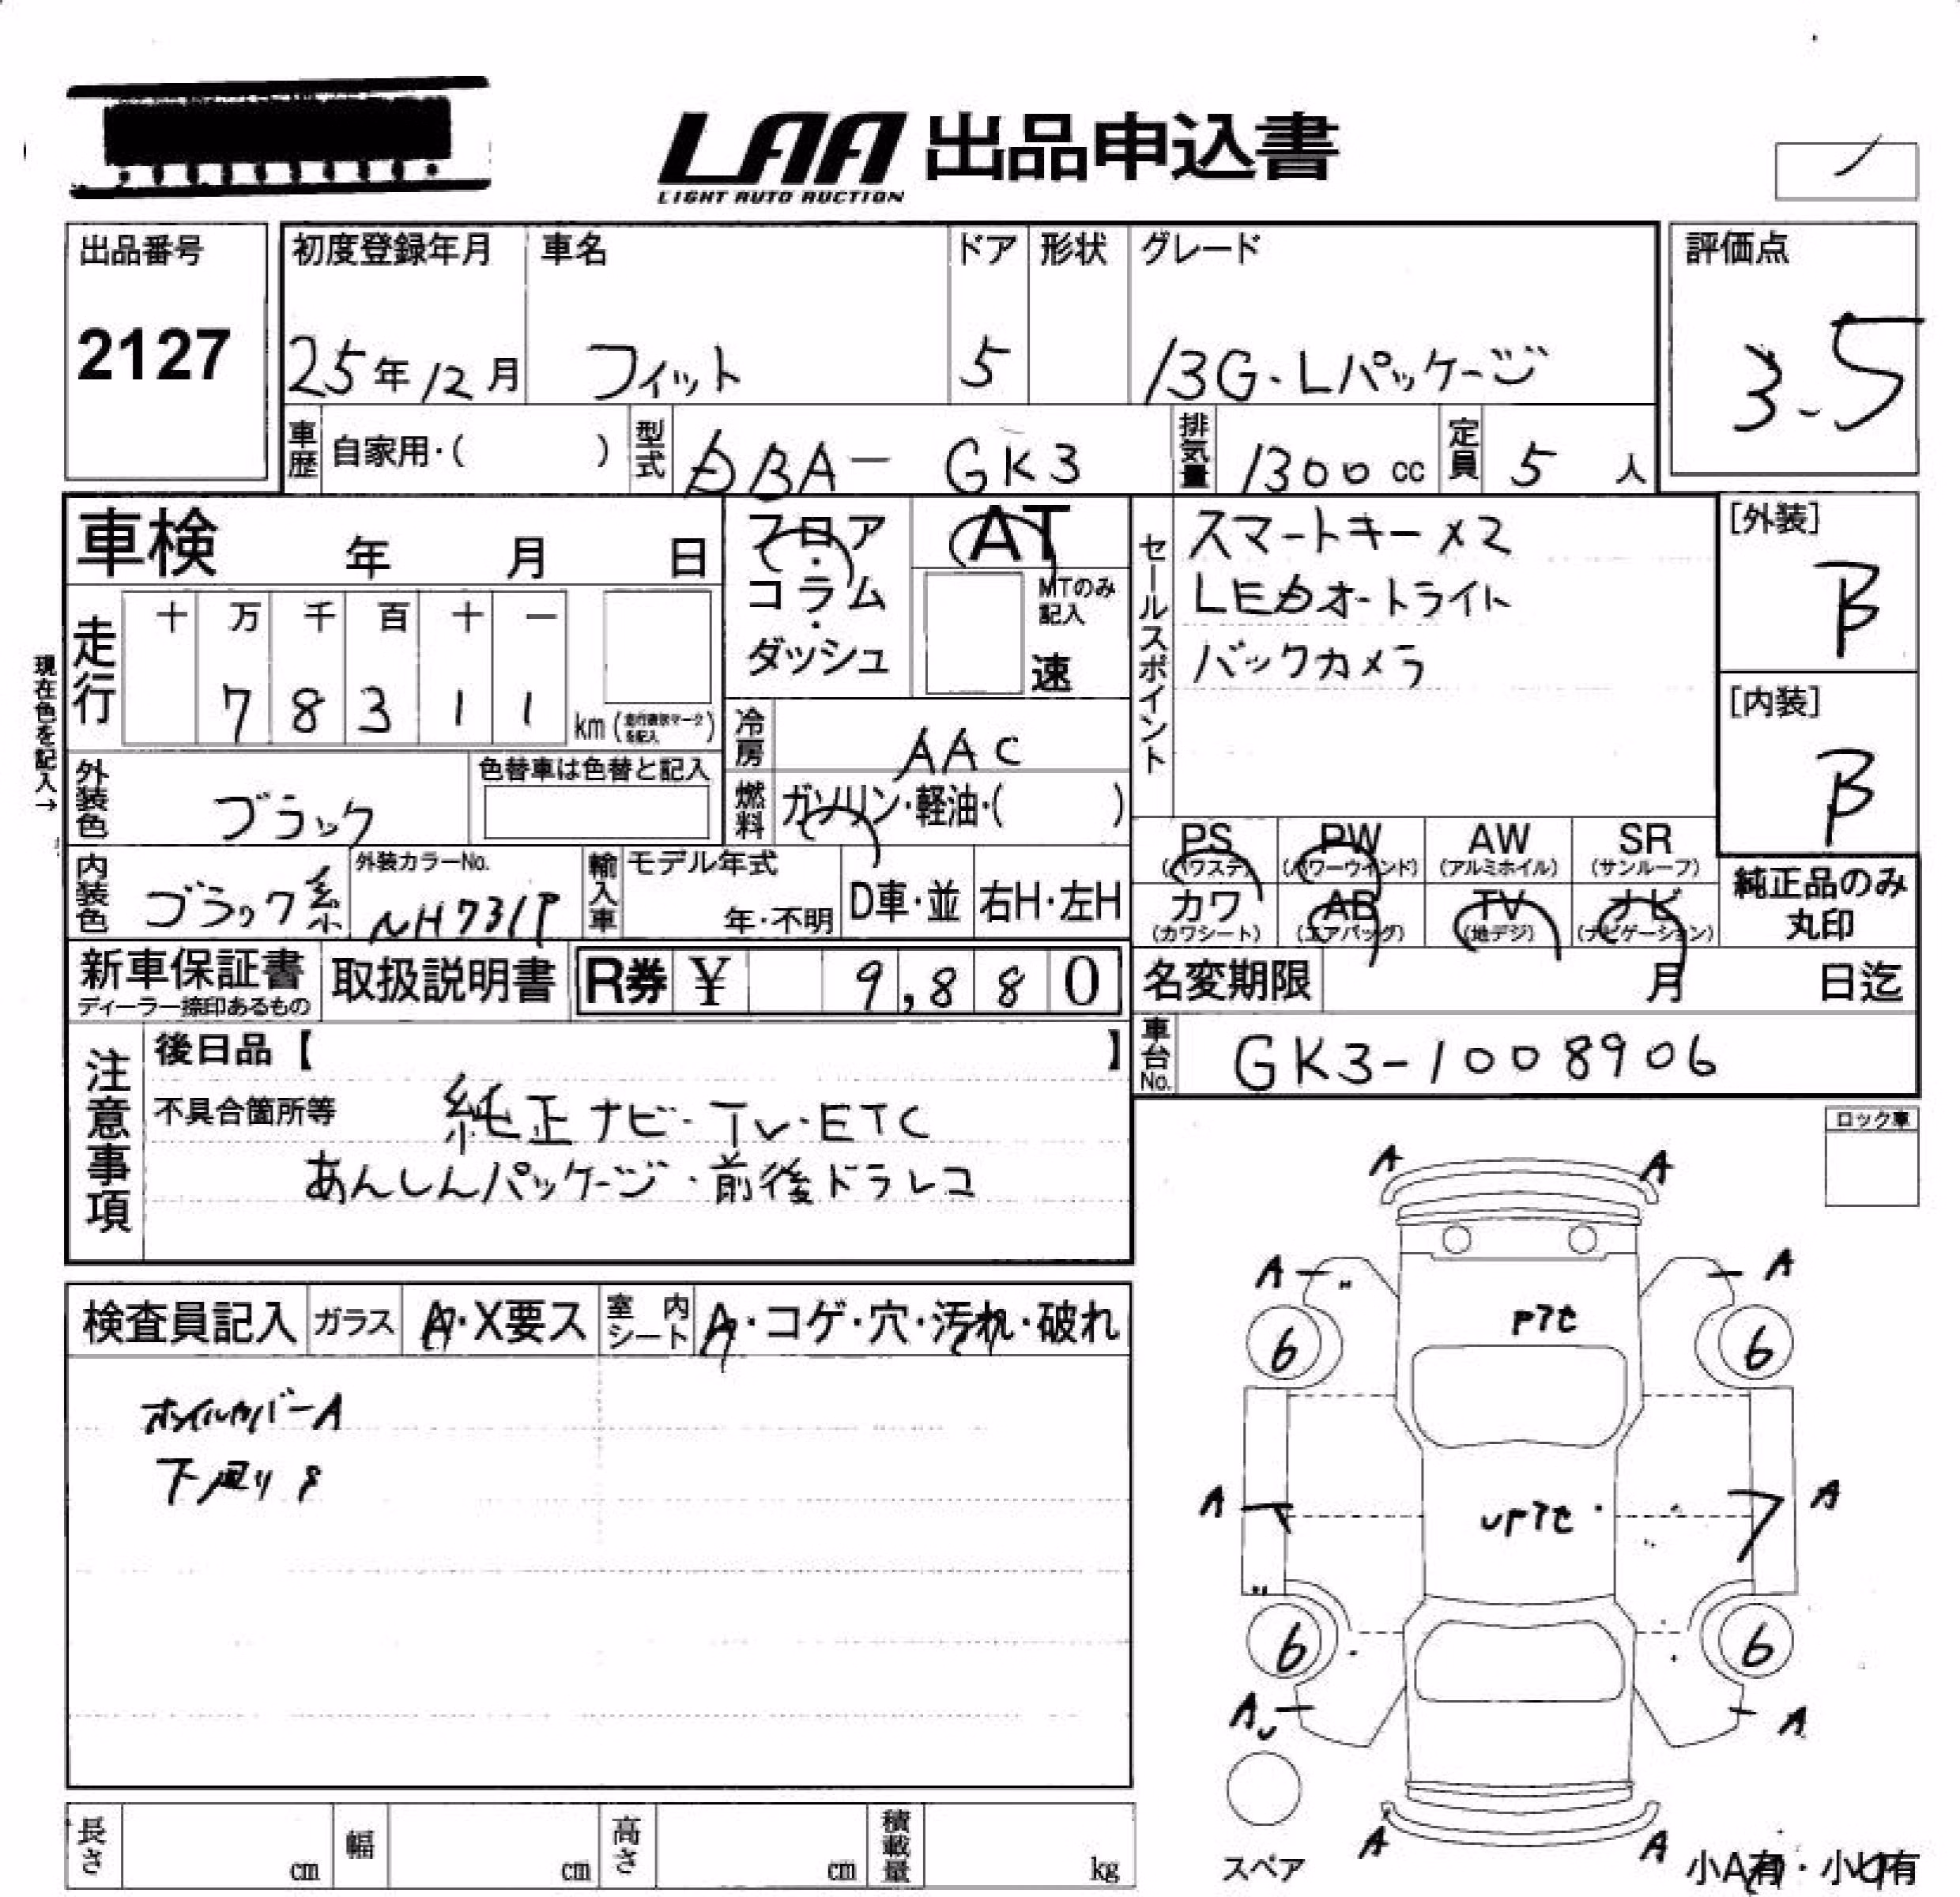 LAA 出品申込書
LIGHT AUTO AUCTION
出品番号
2127
初度登録年月
25年12月
車名
フィット
ドア
5
形状
グレード
13G・Lパッケージ
評価点
3.5
車歴 自家用・( )
型式 DBA- GK3
排気量 1300 cc
定員 5 人
車検 年 月 日
フロア・コラム・ダッシュ
AT
MTのみ記入
速
セールスポイント
スマートキー×2
LEDオートライト
バックカメラ
[外装]
B
[内装]
B
現在色を記入→
走行
十 万 千 百 十 一
7 8 3 1 1
km
冷房 AAC
燃料 ガソリン・軽油・( )
外装色 ブラック
色替車は色替と記入
内装色 ブラック系
外装カラーNo.
NH731P
輸入車 モデル年式
年・不明
D車・並
右H・左H
PS (パワステ)
PW (パワーウインド)
AW (アルミホイル)
SR (サンルーフ)
カワ (カワシート)
AB (エアバッグ)
TV (地デジ)
ナビ (ナビゲーション)
純正品のみ丸印
新車保証書
ディーラー捺印あるもの
取扱説明書
R券 ¥ 9,880
名変期限 月 日迄
車台No. GK3-1008906
注意事項
後日品【 】
不具合箇所等
純正ナビ・TV・ETC
あんしんパッケージ・前後ドラレコ
ロック車
検査員記入
ガラス A・X要ス
室内シート A・コゲ・穴・汚れ・破れ
ホイルカバーA
下廻りS
A A
A A
Pアセ
6 6
A A
UPアセ
6 6
AU A
スペア
A A
小A有・小U有
長さ cm
幅 cm
高さ cm
積載量 kg